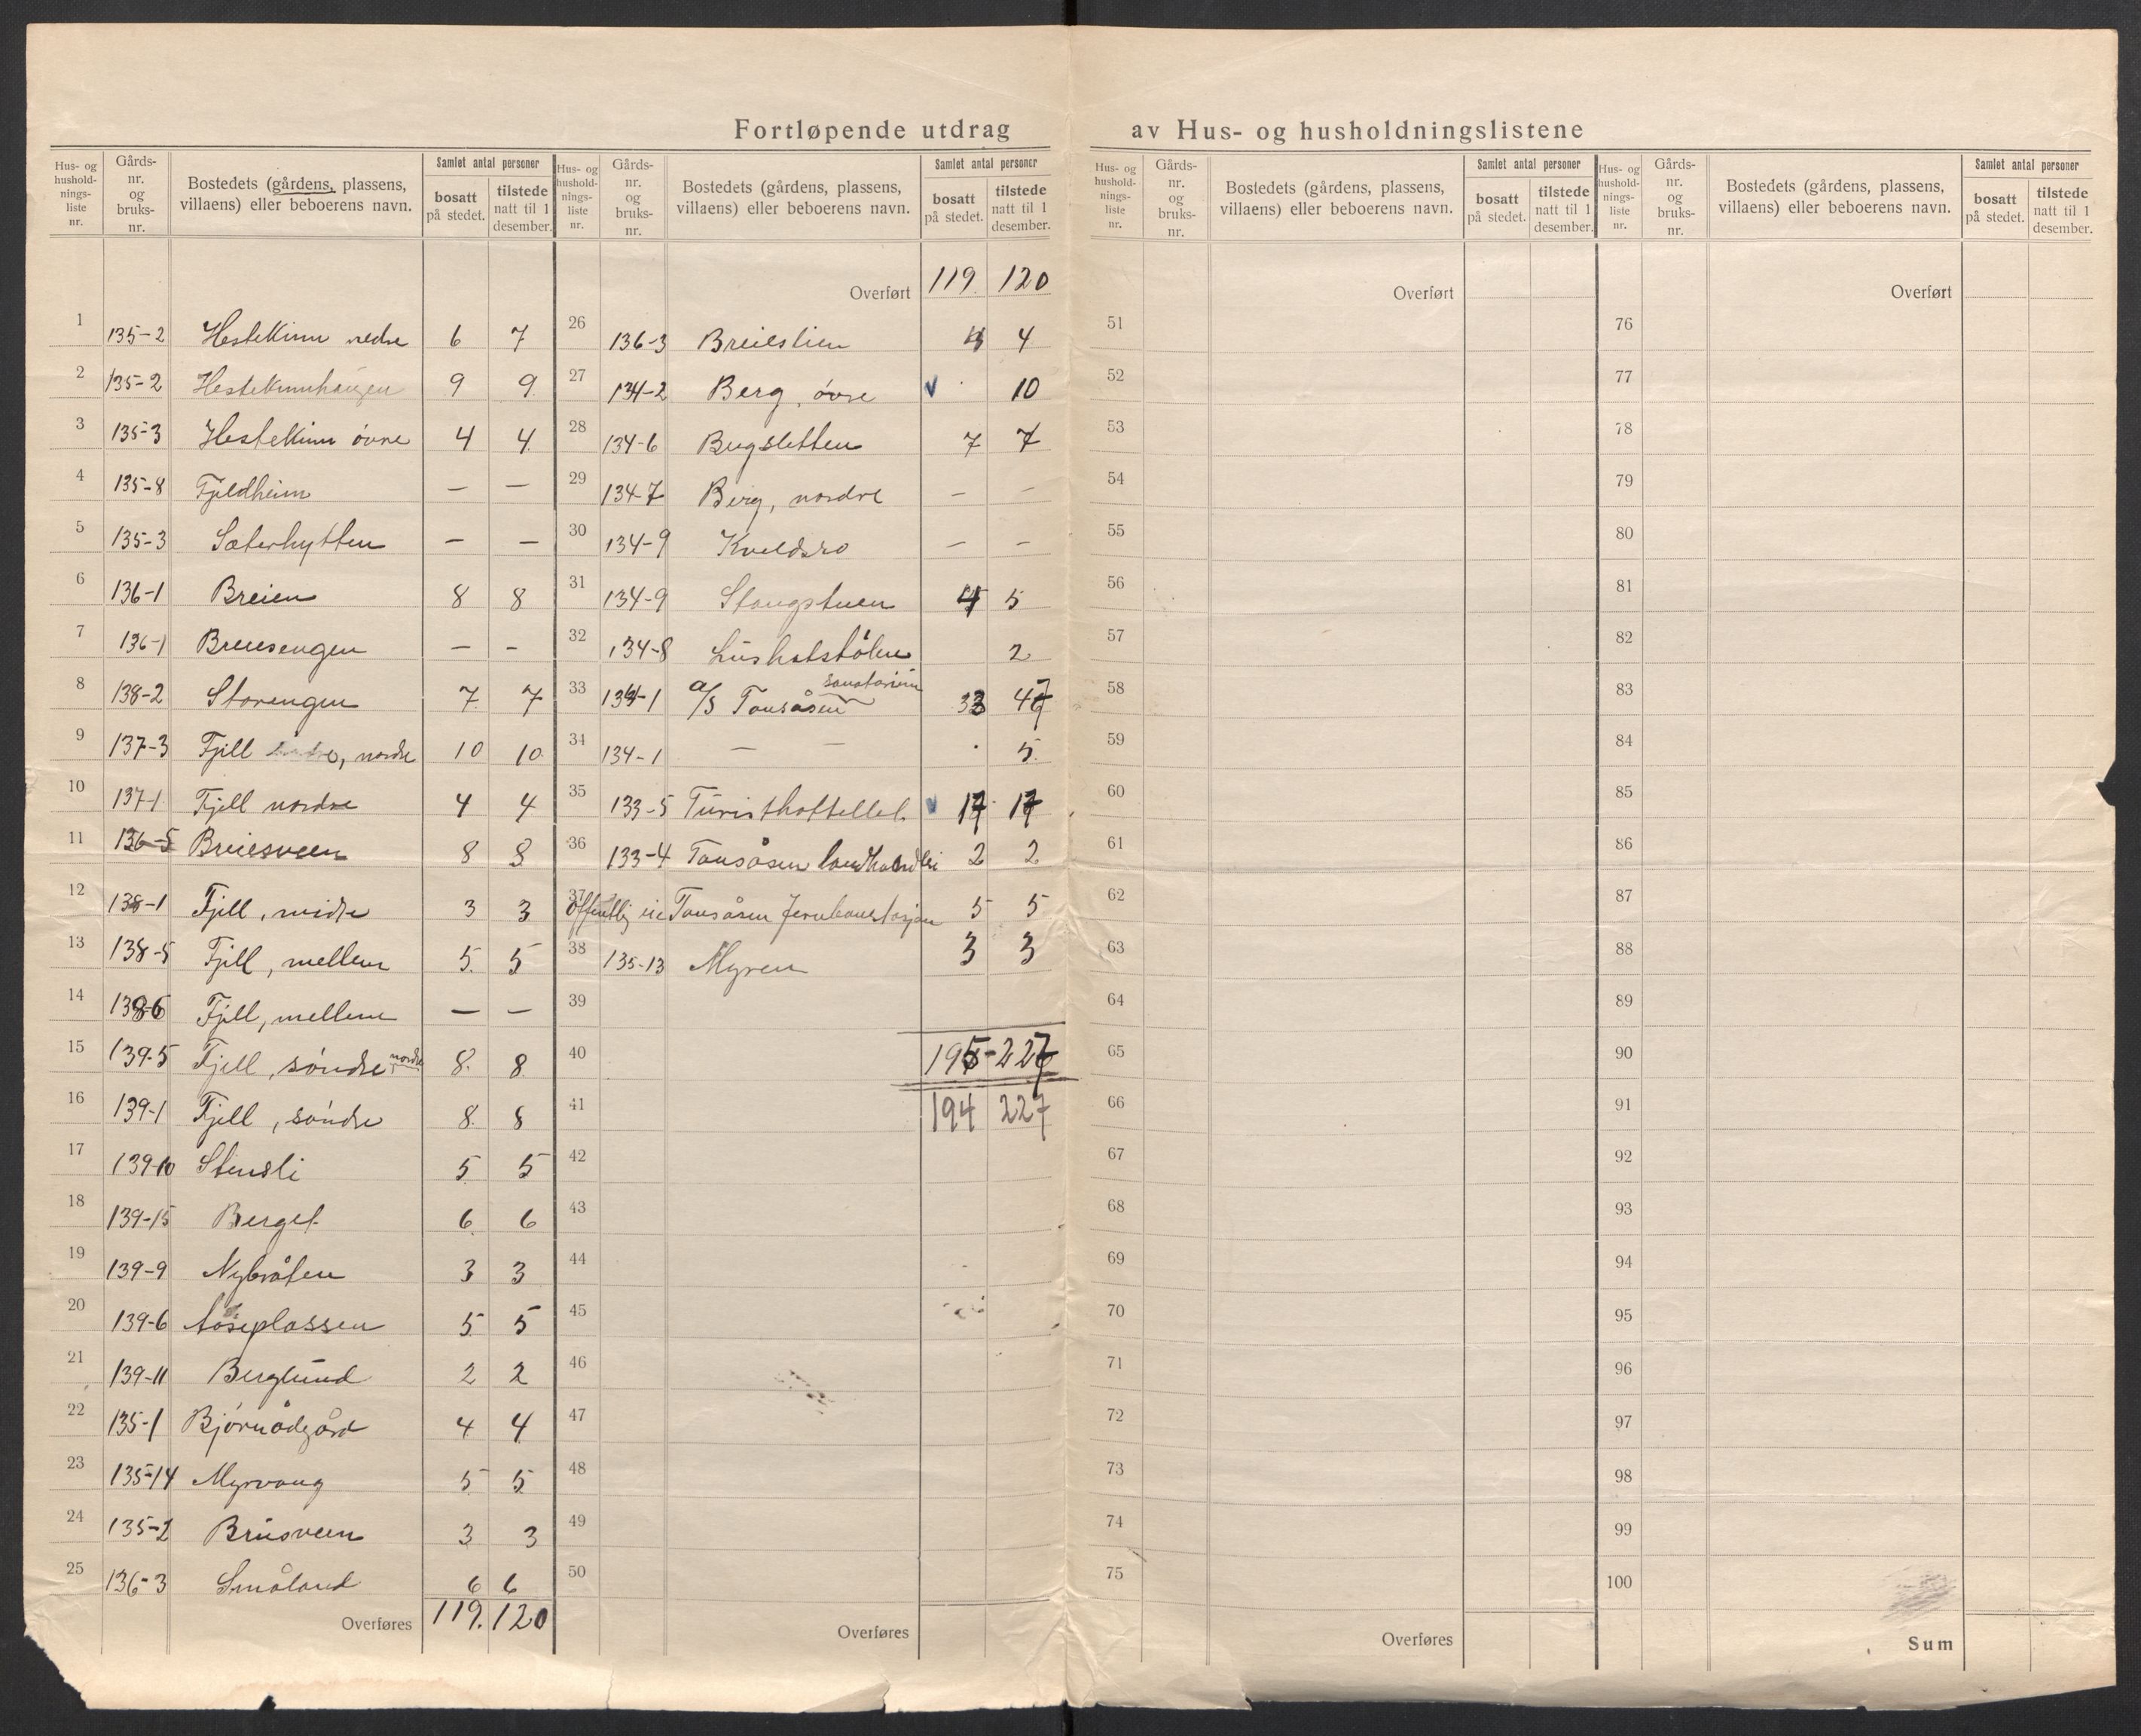 Fortløpende utdrag av Hus- og husholdningslistene
Hus- og hushold- nings- liste nr. Gårds- nr. og bruks- nr. Bostedets (gårdens, plassens, villaens) eller beboerens navn. Samlet antal personer bosatt på stedet. tilstede natt til 1 desember.
1 135-2 Hestekinn nedre 6 7
2 135-2 Hestekinnhaugen 9 9
3 135-3 Hestekinn øvre 4 4
4 135-8 Fjeldheim — —
5 135-3 Sæterhytten — —
6 136-1 Breien 8 8
7 136-1 Breiesengen — -
8 138-2 Storengen 7 7
9 137-3 Fjell, nordre 10 10
10 137-1 Fjell nordre 4 4
11 136-5 Breiesveen 8 8
12 138-1 Fjell, midtre 3 3
13 138-5 Fjell, mellem 5 5
14 138-6 Fjell, mellem — —
15 139-5 Fjell, søndre nordre 8 8
16 139-1 Fjell, søndre 8 8
17 139-10 Stensli 5 5
18 139-15 Berget 6 6
19 139-9 Nybråten 3 3
20 139-6 Åoseplassen 5 5
21 139-11 Berglund 2 2
22 135-1 Bjørnødegård 4 4
23 135-14 Myrvang 5 5
24 135-2 Brusveen 3 3
25 136-3 Småland 6 6
Overføres 119. 120
Hus- og hushold- nings- liste nr. Gårds- nr. og bruks- nr. Bostedets (gårdens, plassens, villaens) eller beboerens navn. Samlet antal personer bosatt på stedet. tilstede natt til 1 desember.
Overført 119 120
26 136-3 Breieslien 4 4
27 134-2 Berg, øvre 10
28 134-6 Bergsletten 7 7
29 134-7 Berg, nordre — —
30 134-9 Kveldsro — —
31 134-9 Stangstuen 4 5
32 134-8 2
33 134-1 a/s Tonsåsen sanatorium 33 47
34 134-1 — — 5
35 133-5 Turisthottellet 17 17
36 133-4 Tonsåsen landhandleri 2 2
37 Offentlig eie Tonsåsen Jernbanestasjon 5 5
38 135-13 Myren 3 3
39
40 195-227
41 194 227
42
43
44
45
46
47
48
49
50
Overføres
Hus- og hushold- nings- liste nr. Gårds- nr. og bruks- nr. Bostedets (gårdens, plassens, villaens) eller beboerens navn. Samlet antal personer bosatt på stedet. tilstede natt til 1 desember.
Overført
51
52
53
54
55
56
57
58
59
60
61
62
63
64
65
66
67
68
69
70
71
72
73
74
75
Overføres
Hus- og hushold- nings- liste nr. Gårds- nr. og bruks- nr. Bostedets (gårdens, plassens, villaens) eller beboerens navn. Samlet antal personer bosatt på stedet. tilstede natt til 1 desember.
Overført
76
77
78
79
80
81
82
83
84
85
86
87
88
89
90
91
92
93
94
95
96
97
98
99
100
Sum